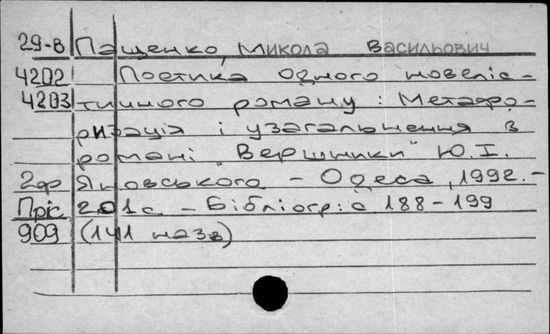 29-В Пащенко, Микола Васильович
4202 Поетика одного новеліс-
4203 тичного роману: Метафо-
ризація і узагальнення в
романі "Вершники" Ю.І.
2др Яновського. - Одеса, 1992. -
Пріс 201с - Бібліогр: с 188-199
909 (141 назв)